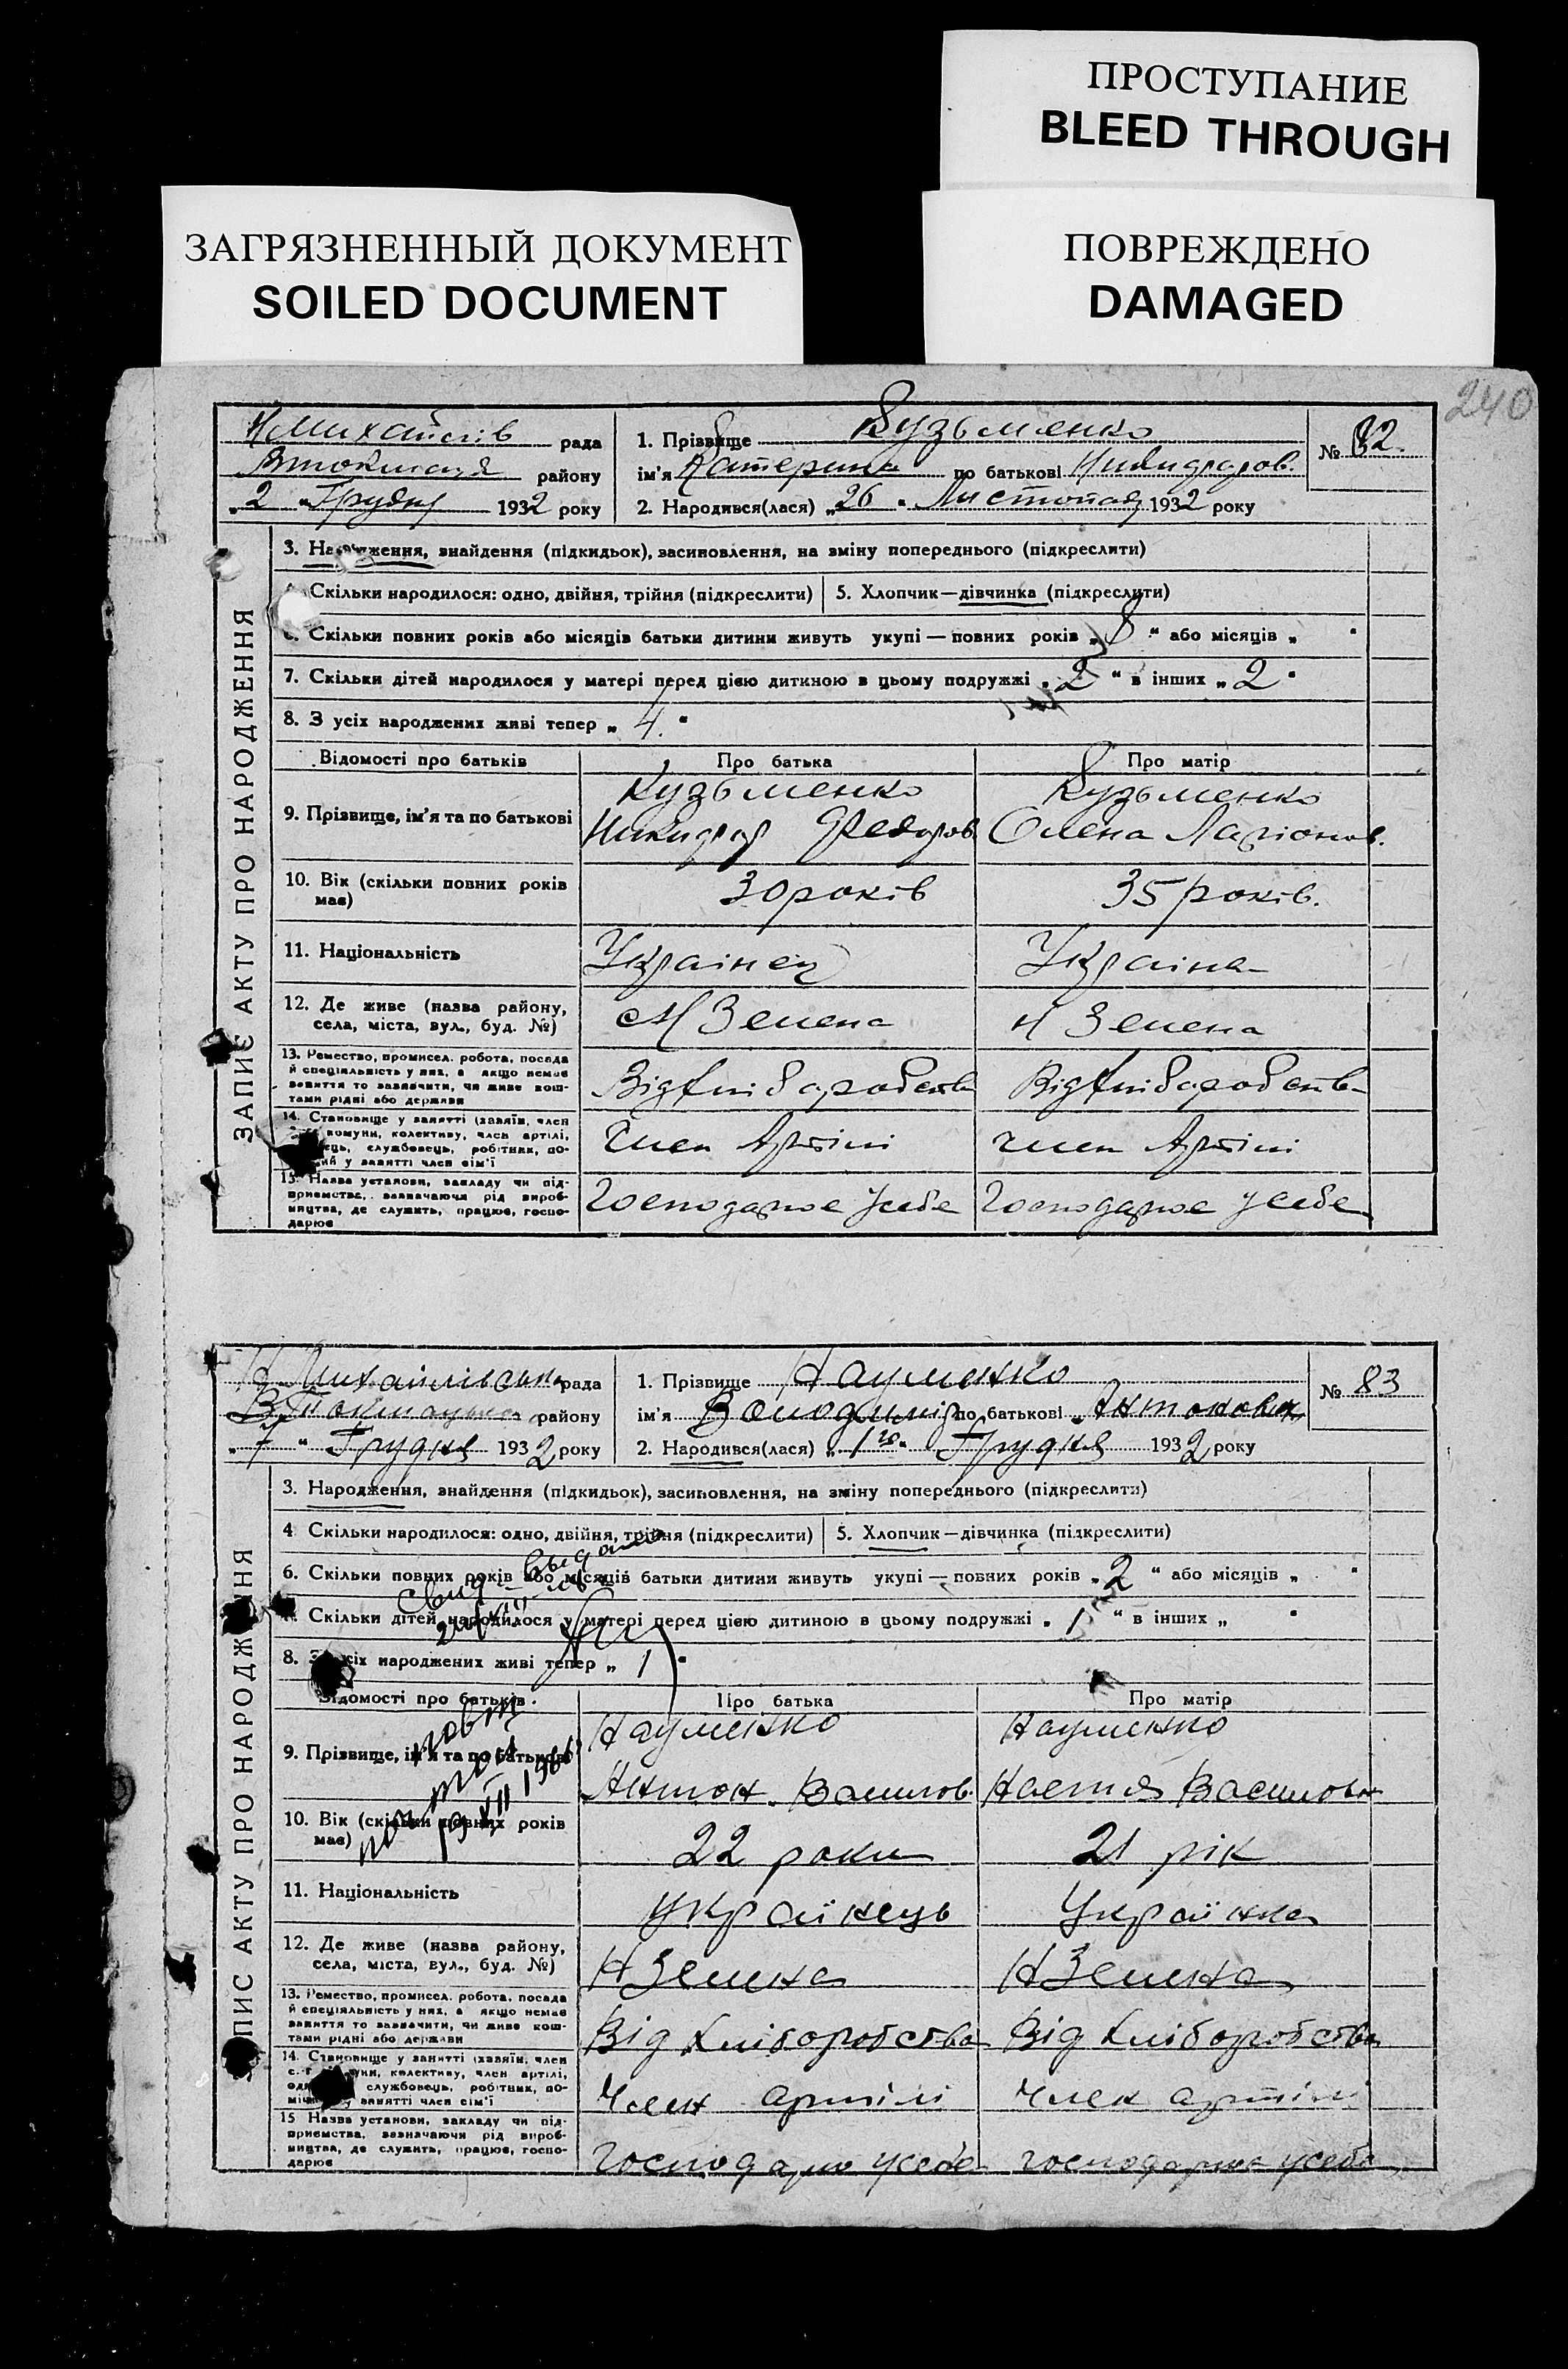 ПРОСТУПАНИЕ
BLEED THROUGH
ЗАГРЯЗНЕННЫЙ ДОКУМЕНТ
SOILED DOCUMENT
ПОВРЕЖДЕНО
DAMAGED
240
рада
району
„2“ Грудня 1932 року
1. Прізвище Кузьменко
ім'я Катерина по батькові
2. Народився(лася) „26“ Листопад 1932 року
№ 82.
ЗАПИС АКТУ ПРО НАРОДЖЕННЯ
3. Народження, знайдення (підкидьок), засиновлення, на зміну попереднього (підкреслити)
Скільки народилося: одно, двійня, трійня (підкреслити) 5. Хлопчик—дівчинка (підкреслити)
Скільки повних років або місяців батьки дитини живуть укупі — повних років „8“ або місяців „ “
7. Скільки дітей народилося у матері перед цією дитиною в цьому подружжі „2“ в інших „2“
8. З усіх народжених живі тепер „4.“
Відомості про батьків Про батька Про матір
9. Прізвище, ім'я та по батькові
Кузьменко Кузьменко
Федоров. Олена Ларіонов.
10. Вік (скільки повних років має) 30 років 35 років.
11. Національність Українец Україна
12. Де живе (назва району, села, міста, вул., буд. №) Н Зелена Н Зелена
13. Ремество, промисел. робота, посада й спеціяльність у них, а якщо немає заняття то зазначити, чи живе коштами рідні або держави
Від хліборобства Від хліборобства
14. Становище у занятті (хазяїн, член комуни, колективу, член артілі, службовець, робітник, у занятті член сім'ї
Член Артіли член Артіли
15. Назва установи, закладу чи підприємства, зазначаючи рід виробництва, де служить, працює, господарює
Господарює у себе Господарює у себе
Н Михайлівська рада
В Токмацька району
„7“ Грудня 1932 року
1. Прізвище Науменко
ім'я Володимир по батькові Антонович
2. Народився(лася) „1го“ Грудня 1932 року
№ 83
ПИС АКТУ ПРО НАРОДЖЕННЯ
3. Народження, знайдення (підкидьок), засиновлення, на зміну попереднього (підкреслити)
4 Скільки народилося: одно, двійня, трійня (підкреслити) 5. Хлопчик—дівчинка (підкреслити)
6. Скільки повних років або місяців батьки дитини живуть укупі — повних років „2“ або місяців „ “
Скільки дітей народилося у матері перед цією дитиною в цьому подружжі „1“ в інших „ “
8. З усіх народжених живі тепер „1“
Відомості про батьків. Про батька Про матір
9. Прізвище, ім'я та по батькові
Науменко Науменко
Антон Васильов. Настя Васильовн
10. Вік (скільки повних років має) 22 роки 21 рік
11. Національність українець Українка
12. Де живе (назва району, села, міста, вул., буд. №) Н Зелена Н Зелена
13. Ремество, промисел. робота, посада й спеціяльність у них, а якщо немає заняття то зазначити, чи живе коштами рідні або держави
Від хліборобства Від хліборобства
14. Становище у занятті (хазяїн, член колективу, член артілі, службовець, робітник, у занятті член сім'ї
Член артілі Член артілі
15 Назва установи, закладу чи підприємства, зазначаючи рід виробництва, де служить, працює, господарює
господарює у себе господарює у себе